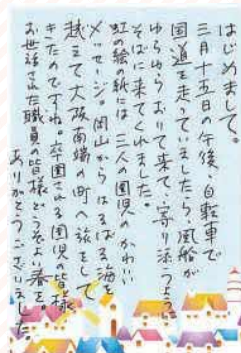 はじめまして。
三月十五日の午後、自転車で
国道を走っていましたら、風船が
ゆらゆらおりて来て、寄り添うように
そばに来てくれました。
虹の絵の紙には、三人の園児のかわいい
メッセージ。岡山からはるばる海を
越えて大阪南端の町へ旅をして
きたのですね。卒園される園児の皆様、
お世話された職員の皆様どうぞよい春を。
ありがとうございました。